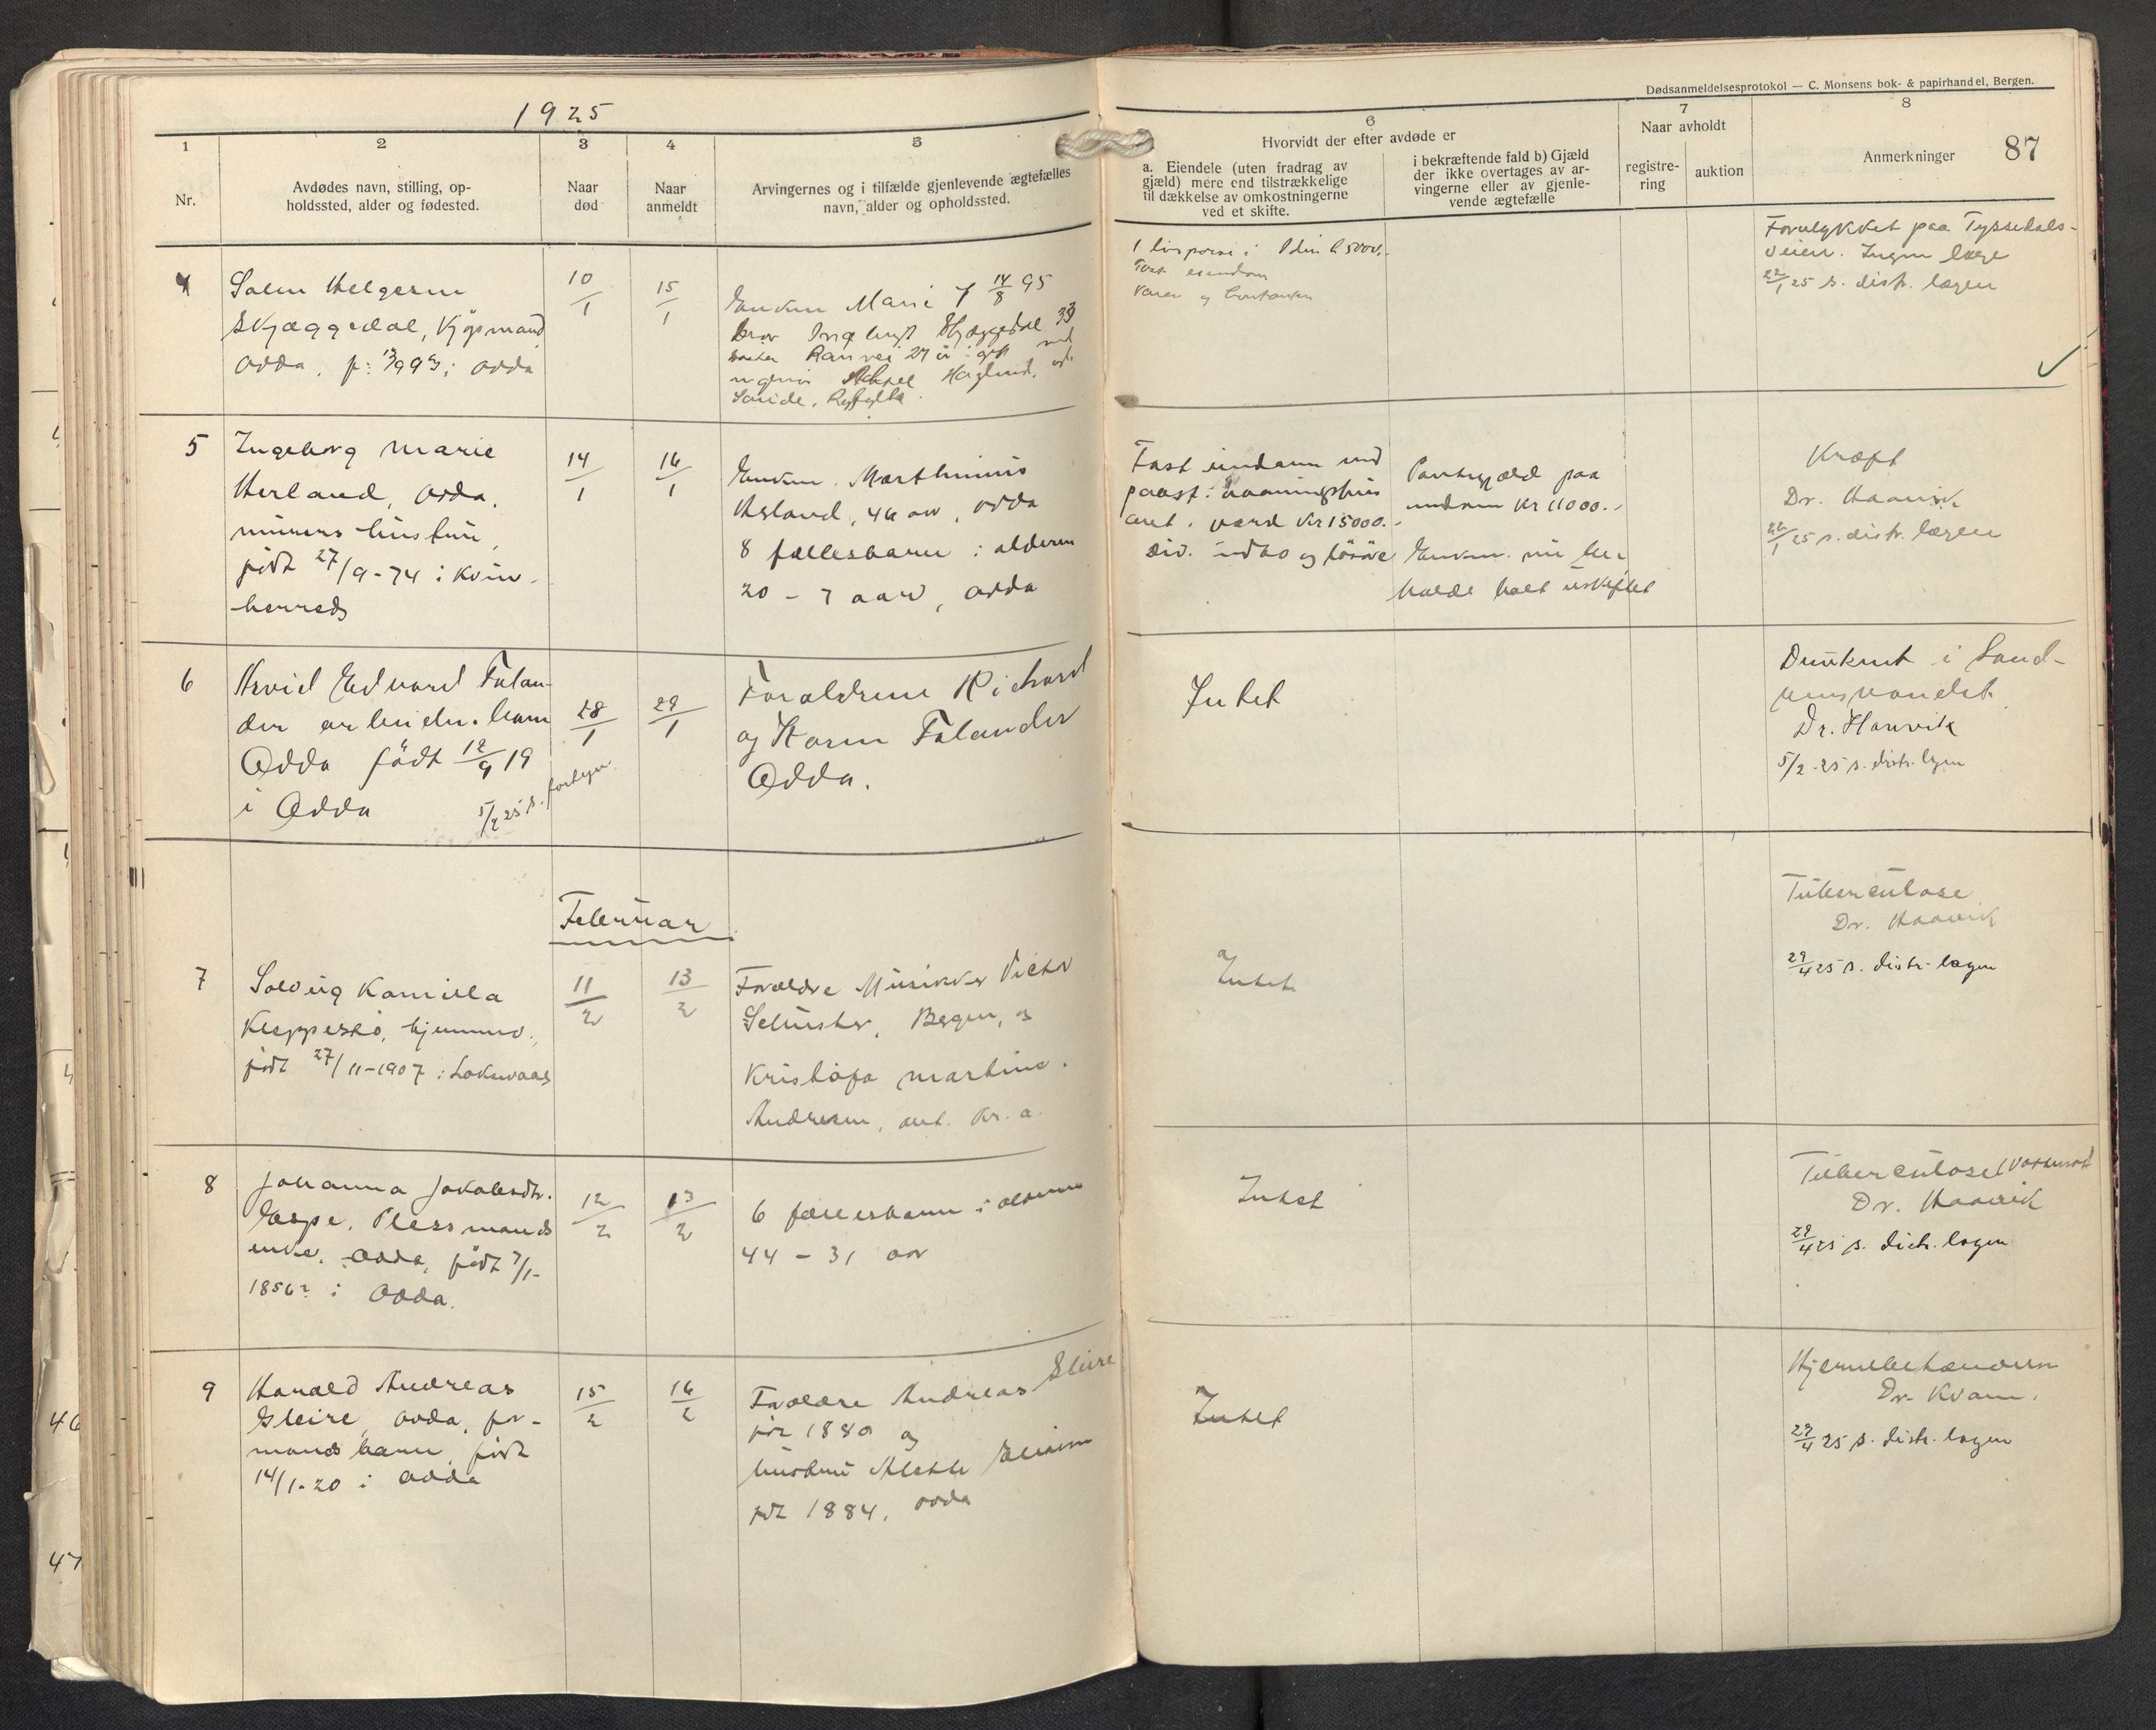 1925
Dødsanmeldelsesprotokol — C. Monsens bok- & papirhandel, Bergen.
87
1
Nr.
2
Avdødes navn, stilling, op-
holdssted, alder og fødested.
3
Naar
død
4
Naar
anmeldt
5
Arvingernes og i tilfælde gjenlevende ægtefælles
navn, alder og opholdssted.
6
Hvorvidt der efter avdøde er
a. Eiendele (uten fradrag av
gjæld) mere end tilstrækkelige
til dækkelse av omkostningerne
ved et skifte.
i bekræftende fald b) Gjæld
der ikke overtages av ar-
vingerne eller av gjenle-
vende ægtefælle
7
Naar avholdt
registre-
ring
auktion
8
Anmerkninger
4
Skjæggedal, kjøpmand
Odda
10/1
15/1
Enken Marie f 14/8 95
Bror Skjæggedal
Ranvei 27 år gift med
Haglund
1 i 5000.-
Fast eiendom
Varer og
Forulykket paa Tyssedals-
veien. Ingen læge
22/1 25 s. distr. lægen
5
Ingeborg Marie
Herland, Odda,
murers hustru,
født 27/9-74 i Kvin-
herred
14/1
16/1
Enkem. Marthinus
Herland, 46 aar, Odda
8 fællesbarn i alderen
20 - 7 aar, Odda
Fast eiendom med
paast. vaaningshus
værd Kr 15000.-
Div. indbo og løsøre
Pantegjæld paa
eiendom Kr 11000.-
Enkem. vil be-
holde boet uskiftet
Kræft
Dr. Haavik
/1 25 s. distr. lægen
6
Arvid Edvard Falan-
der arbeider. barn
Odda født 12/9 19
i Odda
5/2 25 s.
28/1
29/1
Forældrene Richard
og Karen Falander
Odda.
Intet
Druknet i Sand-
vinsvandet.
Dr. Haavik
5/2-25 s. distr. lægen
Februar
7
Solveig Kamilla
Kleppestø, hjemmev.,
født 27/11-1907 i
11/2
13/2
Forældre Musiker Victor
Bergen, og
Kristofa Martine
Andresen, Kr.a.
Intet
Tuberculose
Dr. Haavik
29/4 25 s. distr. lægen
8
Johanna Jakobsdtr.
Espe,
enke, Odda, født 7/1-
1856? i Odda.
12/2
13/2
6 fællesbarn i alderen
44 - 31 aar
Intet
Tuberculose
Dr. Haavik
29/4 25 s. distr. lægen
9
Harald Andreas
Sleire, Odda, for-
mands barn, født
14/1-20 i Odda
15/2
16/2
Forældre Andreas Sleire
født 1880 og
hustru
født 1884, Odda
Intet
Hjernebetændelse
Dr. Kvam.
29/4 25 s. distr. lægen
46
47